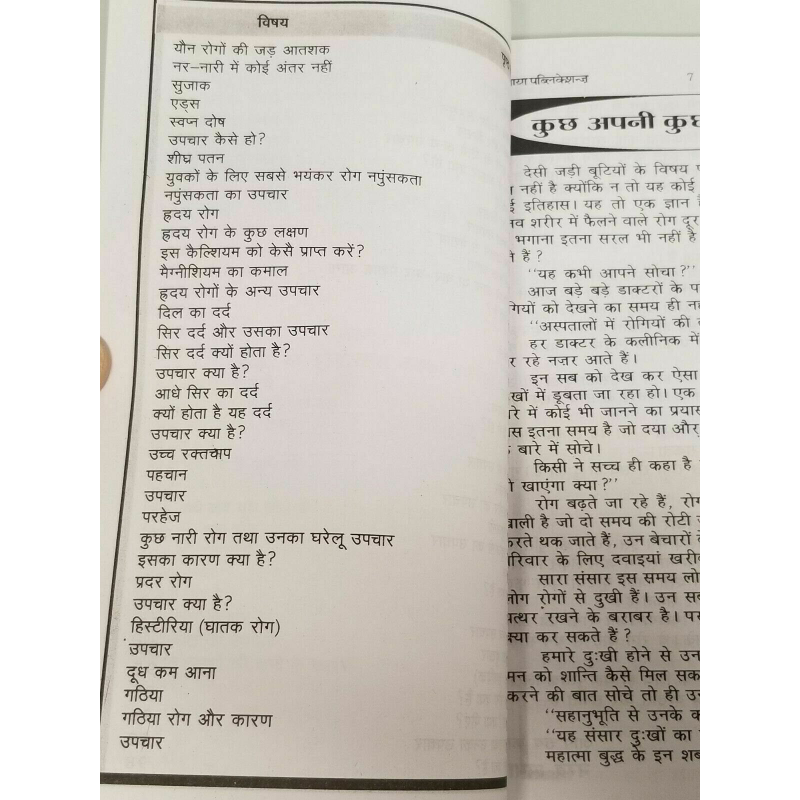 विषय
यौन रोगों की जड़ आतशक
नर-नारी में कोई अंतर नहीं
सुजाक
एड्स
स्वप्न दोष
उपचार कैसे हो?
शीघ्र पतन
युवकों के लिए सबसे भयंकर रोग नपुंसकता
नपुंसकता का उपचार
ह्रदय रोग
ह्रदय रोग के कुछ लक्षण
इस कैल्शियम को केसै प्राप्त करें?
मैग्नीशियम का कमाल
ह्रदय रोगों के अन्य उपचार
दिल का दर्द
सिर दर्द और उसका उपचार
सिर दर्द क्यों होता है?
उपचार क्या है?
आधे सिर का दर्द
क्यों होता है यह दर्द
उपचार क्या है?
उच्च रक्तचाप
पहचान
उपचार
परहेज
कुछ नारी रोग तथा उनका घरेलू उपचार
इसका कारण क्या है?
प्रदर रोग
उपचार क्या है?
हिस्टीरिया (घातक रोग)
उपचार
दूध कम आना
गठिया
गठिया रोग और कारण
उपचार
पब्लिकेशन्ज़ 7
कुछ अपनी कुछ
देसी जड़ी बूटियों के विषय
नहीं है क्योंकि न तो यह कोई
इतिहास। यह तो एक ज्ञान
शरीर में फैलने वाले रोग दूर
भगाना इतना सरल भी नहीं है
हैं ?
“यह कभी आपने सोचा?”
आज बड़े बड़े डाक्टरों के
को देखने का समय ही
“अस्पतालों में रोगियों की
हर डाक्टर के कलीनिक में
रहे नज़र आते हैं।
इन सब को देख कर ऐसा
में डूबता जा रहा हो। एक
में कोई भी जानने का प्रयास
इतना समय है जो दया और
बारे में सोचे।
किसी ने सच्च ही कहा है
खाएंगा क्या ?”
रोग बढ़ते जा रहे हैं,
है जो दो समय की रोटी
थक जाते हैं, उन बेचारों
के लिए दवाइयां
सारा संसार इस समय
रोगों से दुखी हैं। उन
रखने के बराबर है।
कर सकते हैं ?
हमारे दुःखी होने से
मन को शान्ति कैसे मिल
करने की बात सोचे तो ही
“सहानुभूति से उनके
“यह संसार दुःखों का
महात्मा बुद्ध के इन